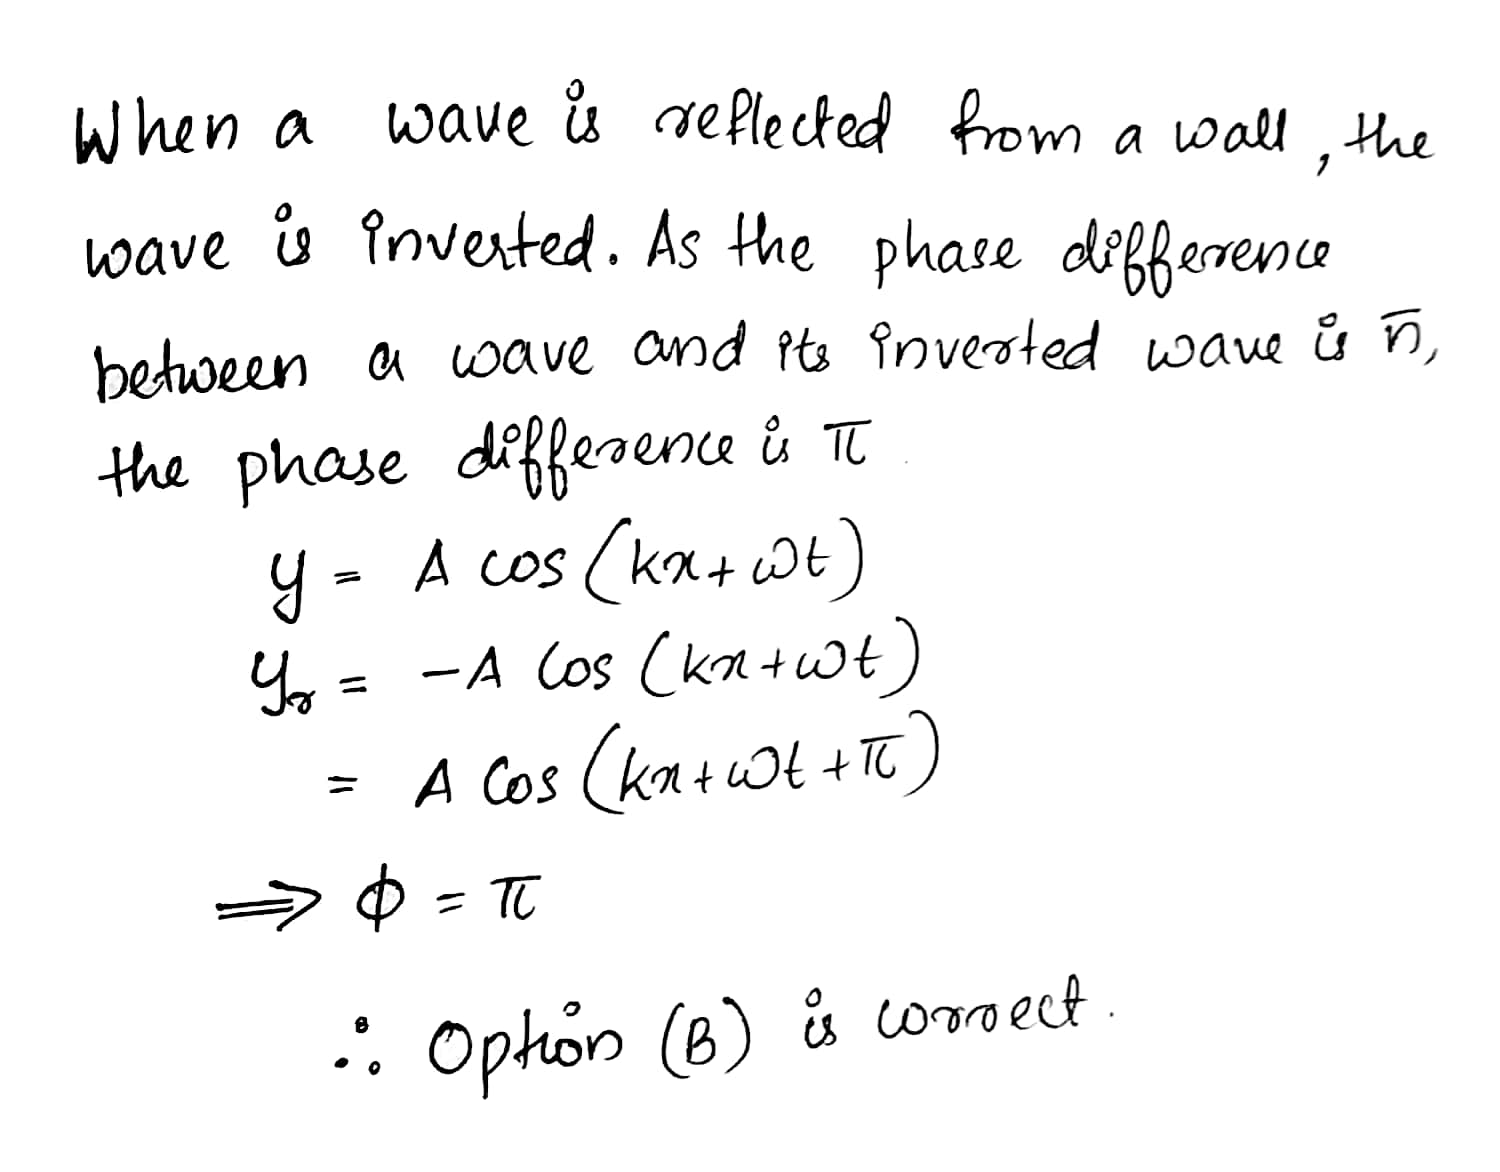 When a wave is reflected from a wall, the
wave is inverted. As the phase difference
between a wave and its inverted wave is π,
the phase difference is π
y = A cos (kx+ωt)
yr = -A Cos (kx+ωt)
= A Cos (kx+ωt+π)
⟹ ϕ = π
∴ Option (B) is correct.